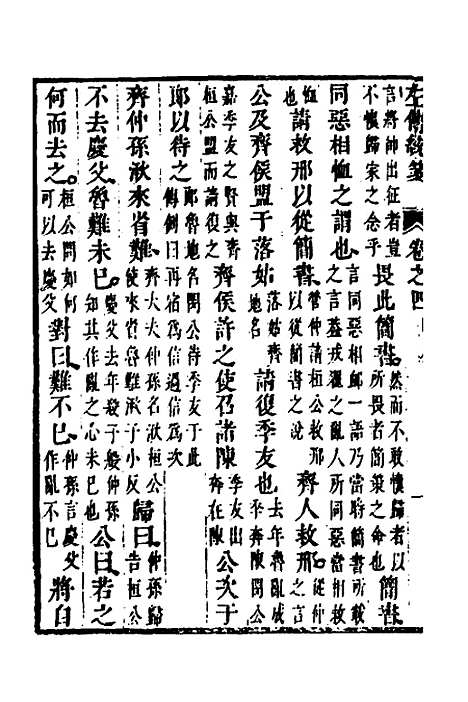 左傳統箋 卷之四
言將帥出征者豈不懷歸家之念乎畏此簡書然而不敢懷歸者以所畏者簡策之命也簡書
同惡相恤之謂也言同惡相卹一語乃當時簡書所載之言蓋戎狄之亂人所同惡當相救
恤也請救邢以從簡書管仲請桓公救邢以從簡書之說齊人救邢從仲之言
公及齊侯盟于落姑落姑齊地名請復季友也去年魯亂成季奔陳閔公
嘉季友之賢與齊桓公盟而請復之齊侯許之使召諸陳季友出奔在陳公次于
郎以待之郎魯地名閔公待季友于此傳例曰再宿為信過信為次
齊仲孫湫來省難齊大夫仲孫名湫桓公使來省魯難湫子小反歸曰仲孫歸告桓公
不去慶父魯難未已慶父去年殺子般仲孫知其作亂之心未已也公曰若之
何而去之桓公問如何可以去慶父對曰難不已仲孫言慶父作亂不已將自